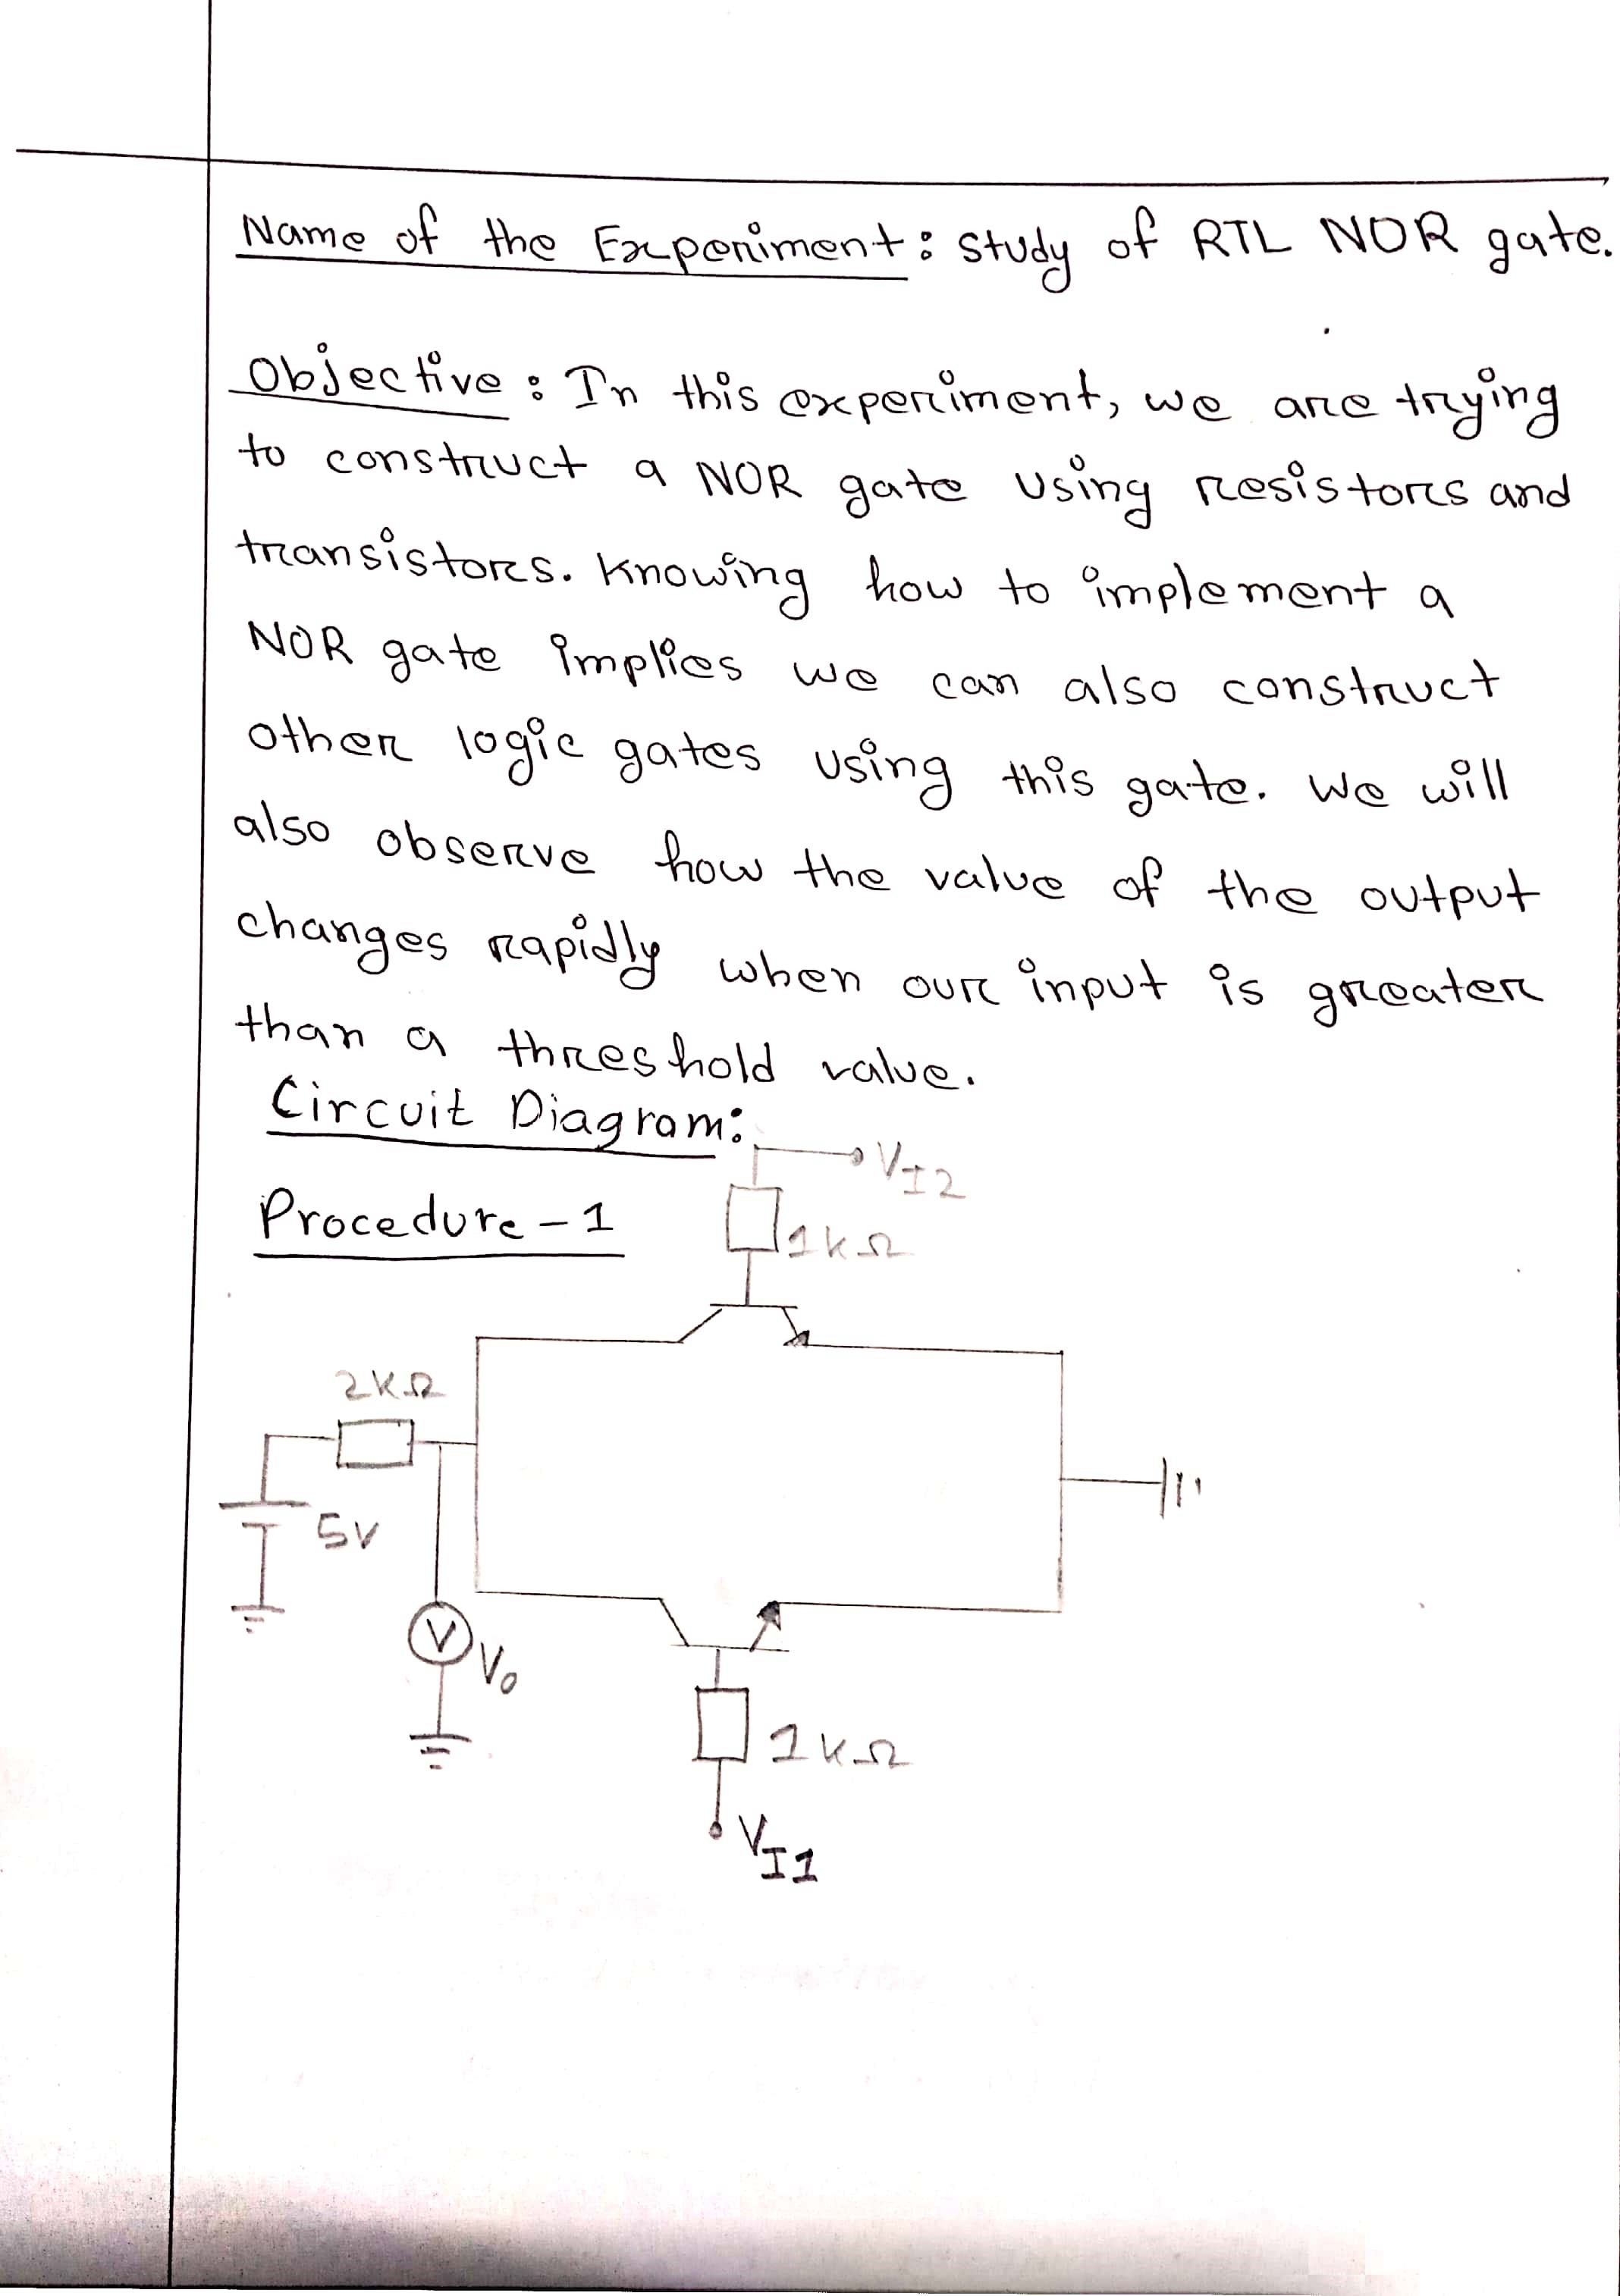 Name of the Experiment: Study of RTL NOR gate.
Objective: In this experiment, we are trying
to construct a NOR gate using resistors and
transistors. Knowing how to implement a
NOR gate implies we can also construct
other logic gates using this gate. We will
also observe how the value of the output
changes rapidly when our input is greater
than a threshold value.
Circuit Diagram:
VI2
Procedure-1
1kΩ
2kΩ
5V
V
Vo
1kΩ
VI1